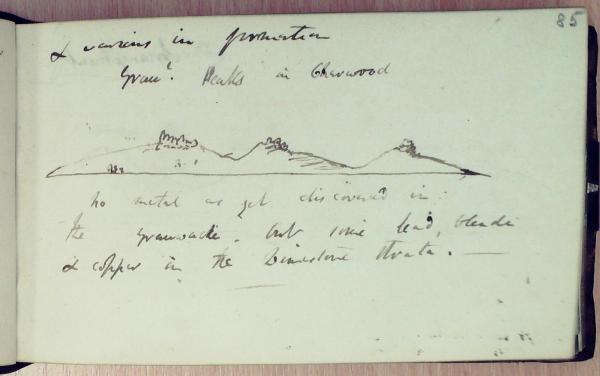 85
& various in formation
Gran! Peaks in Charwood
no metal as yet discovered in
the Grauwacke. but some lead, blende
& copper in the Limestone Strata. —